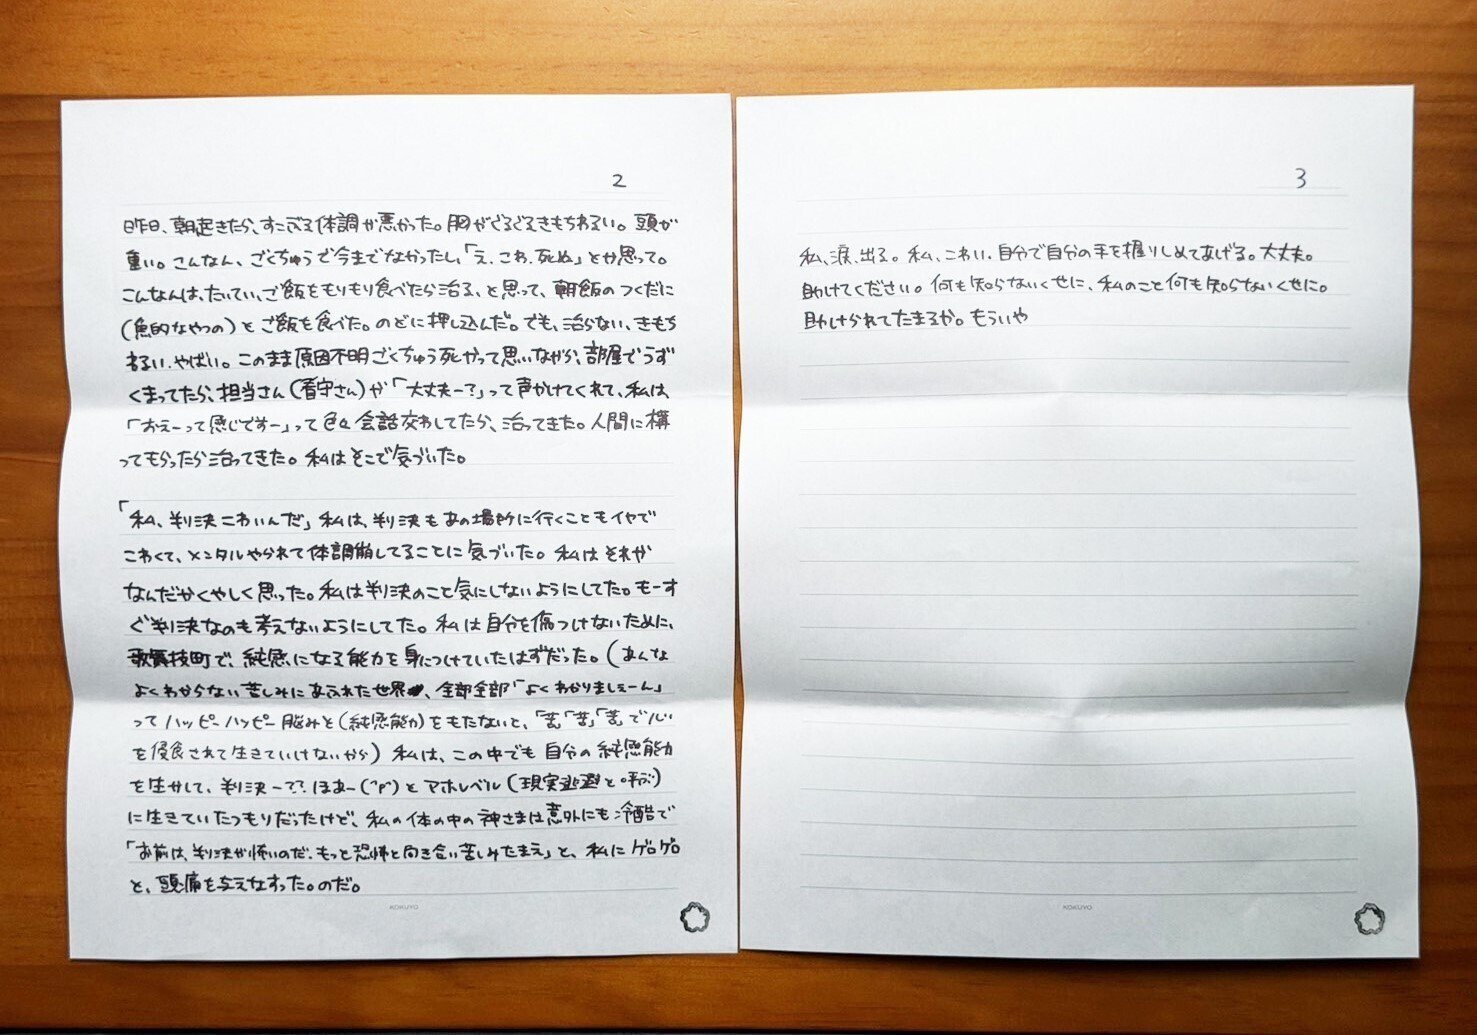 2
昨日、朝起きたら、すこぶる体調が悪かった。胸がぐるぐるきもちわるい。頭が
重い。こんなん、ごくちゅうで今までなかったし、「え、こわ、死ぬ」とか思って。
こんなんは、たいてい、ご飯をもりもり食べたら治る、と思って、朝飯のつくだに
(魚的なやつの)とご飯を食べた。のどに押し込んだ。でも、治らない、きもち
わるい、やばい。このまま原因不明ごくちゅう死かって思いながら、部屋でうず
くまってたら、担当さん(看守さん)が「大丈夫ー?」って声かけてくれて、私は、
「おえーって感じですー」って色々会話交わしてたら、治ってきた。人間に構
ってもらったら治ってきた。私はそこで気づいた。
「私、判決こわいんだ」私は、判決もあの場所に行くこともイヤで
こわくて、メンタルやられて体調崩してることに気づいた。私はそれが
なんだかくやしく思った。私は判決のこと気にしないようにしてた。もーす
ぐ判決なのも考えないようにしてた。私は自分を傷つけないために、
歌舞伎町で、鈍感になる能力を身につけていたはずだった。(あんな
よくわからない苦しみにあふれた世界、全部全部「よくわかりましぇーん」
ってハッピーハッピー脳みそ(鈍感能力)をもたないと、「苦」「苦」「苦」で心
を侵食されて生きていけないから)私は、この中でも自分の鈍感能力
を生かして、判決ー??ほあー(°p°)とアホレベル(現実逃避と呼ぶ)
に生きていたつもりだったけど、私の体の中の神さまは意外にも冷酷で
「お前は、判決が怖いのだ、もっと恐怖と向き合い苦しみたまえ」と、私にゲロゲロ
と、頭痛を与えなすった。のだ。
KOKUYO
3
私、涙、出る。私、こわい、自分で自分の手を握りしめてあげる。大丈夫。
助けてください。何も知らないくせに、私のこと何も知らないくせに。
助けられてたまるか。もういや
KOKUYO